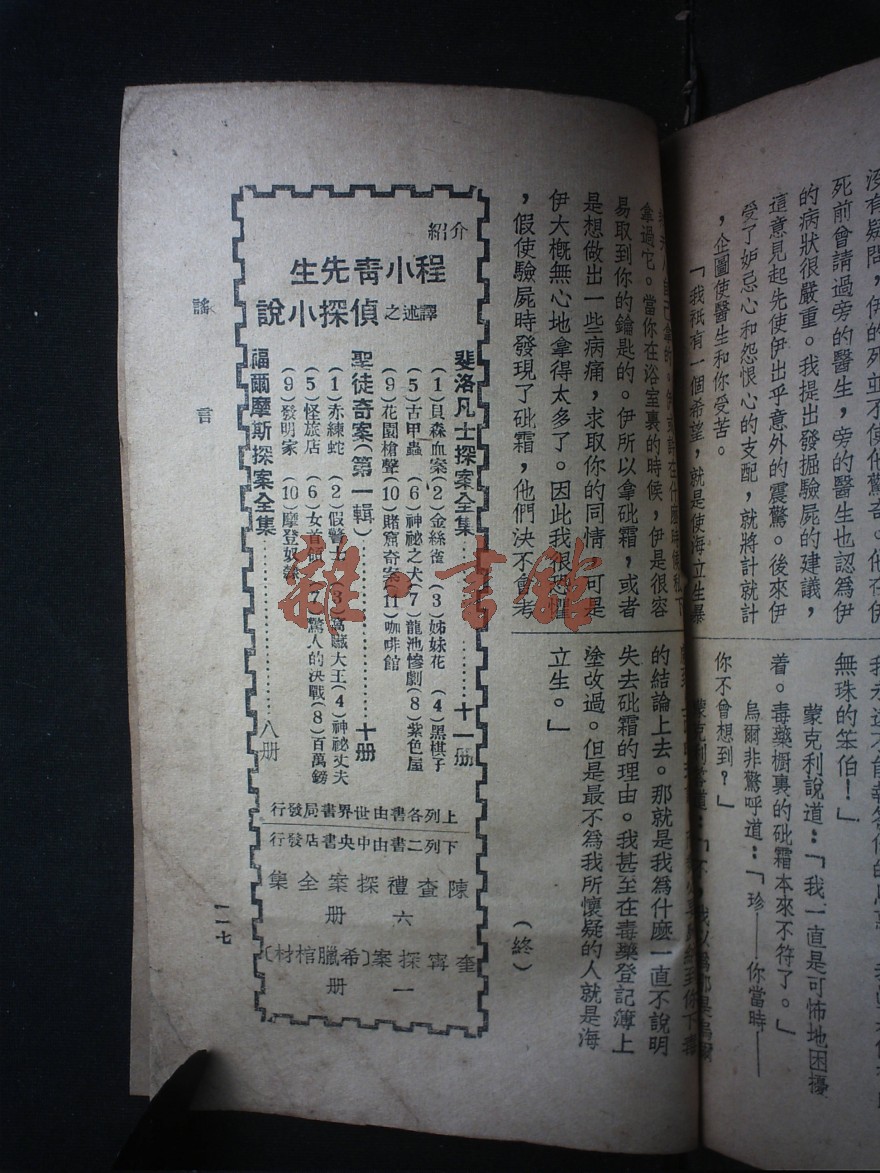 沒有疑問，伊的死並不使他驚奇。他在伊
死前曾請過旁的醫生，旁的醫生也認爲伊
的病狀很嚴重。我提出發掘驗屍的建議，
這意見起先使伊出乎意外的震驚。後來伊
受了妒忌心和怨恨心的支配，就將計就計
，企圖使醫生和你受苦。
「我祇有一個希望，就是使海立生暴
無珠的笨伯！」
蒙克利說道：「我一直是可怖地困擾
着。毒藥櫥裏的砒霜本來不符了。」
烏爾非驚呼道：「珍——你當時——
你不曾想到？」
拿過它。當你在浴室裏的時候，伊是很容
易取到你的鑰匙的。伊所以拿砒霜，或者
是想做出一些病痛，求取你的同情，可是
伊大概無心地拿得太多了。因此我很恐懼
，假使驗屍時發現了砒霜，他們決不會考
的結論上去。那就是我爲什麼一直不說明
失去砒霜的理由。我甚至在毒藥登記簿上
塗改過。但是最不爲我所懷疑的人就是海
立生。」
（終）
紹介
生先青小程
說小探偵之述譯
斐洛凡士探案全集……十一册
(1)貝森血案(2)金絲雀(3)姊妹花(4)黑棋子
(5)古甲蟲(6)神祕之犬(7)龍池慘劇(8)紫色屋
(9)花園槍聲(10)賭窟奇案(11)咖啡館
聖徒奇案(第一輯)……十册
(1)赤練蛇(2)假警士(3)窩贓大王(4)神祕丈夫
(5)怪旅店(6)女首領(7)驚人的決戰(8)百萬鎊
(9)發明家(10)摩登奴隸
福爾摩斯探案全集……八册
行發局書界世由書各列上
行發店書央中由書二列下
集全案探禮查陳
六册
〕材棺臘希〔案探甯奎
一册
謠言
一一七
雜·書館